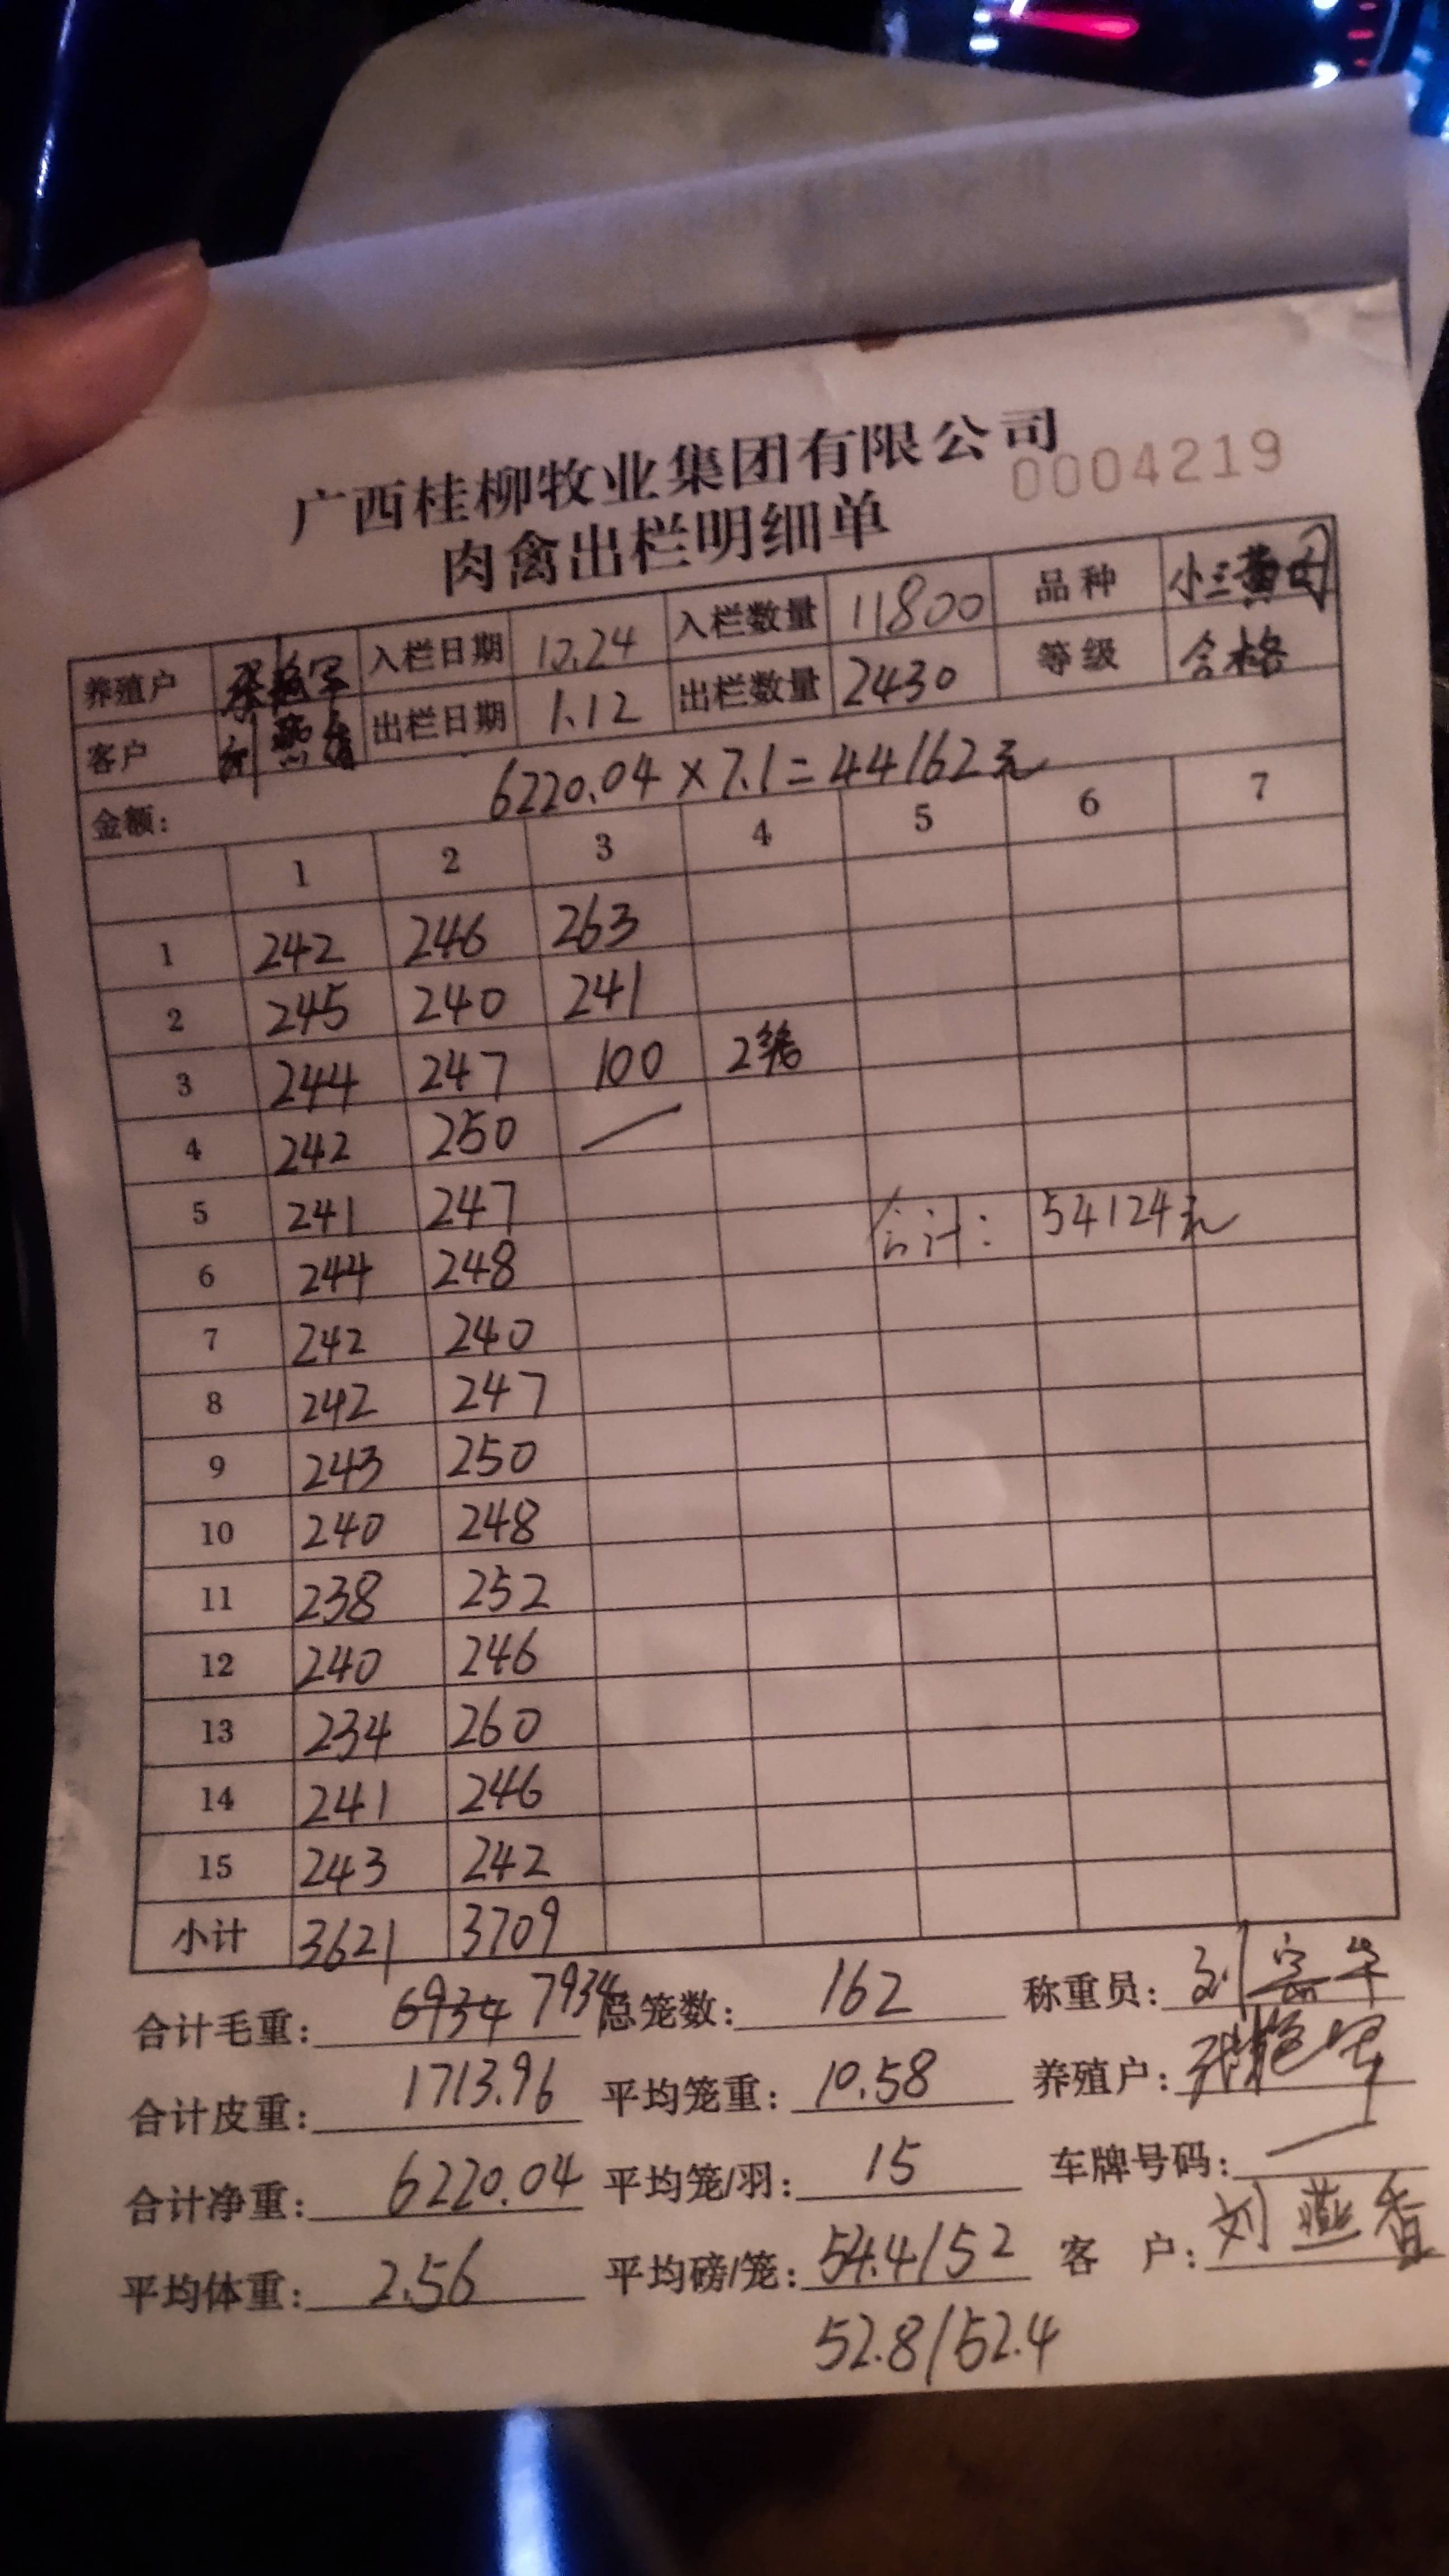 广西桂柳牧业集团有限公司
0004219
肉禽出栏明细单
养殖户 张艳军 入栏日期 12.24 入栏数量 11800 品种 小三黄母
客户 刘燕香 出栏日期 1.12 出栏数量 2430 等级 合格
金额: 6220.04×7.1=44162元
1 2 3 4 5 6 7
1 242 246 263
2 245 240 241
3 244 247 100 2笼
4 242 250 /
5 241 247 合计: 54124元
6 244 248
7 242 240
8 242 247
9 243 250
10 240 248
11 238 252
12 240 246
13 234 260
14 241 246
15 243 242
小计 3621 3709
合计毛重: 6934 7934 总笼数: 162 称重员: 刘
合计皮重: 1713.96 平均笼重: 10.58 养殖户: 张艳军
合计净重: 6220.04 平均笼/羽: 15 车牌号码: /
平均体重: 2.56 平均磅/笼: 54.4/52 客 户: 刘燕香
52.8/52.4